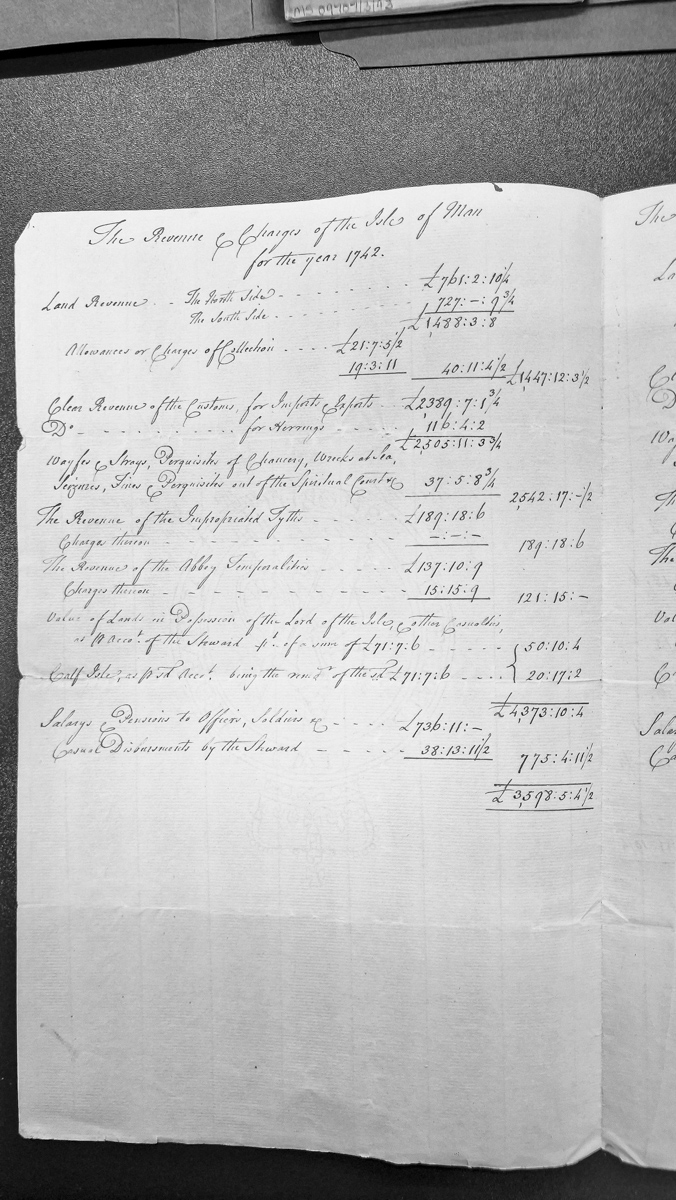 MS 09707/5/1/3
The Revenue & Charges of the Isle of Man
for the year 1742.
Land Revenue - - The North Side - - - - - - - £761:2:10¼
The South Side - - - - - - - 727:-:9¾
£1488:3:8
Allowances or Charges of Collection - - - - £21:7:5½
19:3:11 40:11:4½ £1447:12:3½
Clear Revenue of the Customs, for Imports & Exports - - £2389:7:1¾
Do - - - - - - - - - for Herrings - - - - 116:4:2
£2505:11:3¾
Wayfs & Strays, Perquisites of Chancery, Wrecks at Sea,
Seizures, Fines & Perquisites out of the Spiritual Court &c 37:5:8¾ 2542:17:-½
The Revenue of the Impropriated Tyths - - - - - £189:18:6
Charges thereon - - - - - - - - - - -:-:- 189:18:6
The Revenue of the Abbey Temporalities - - - - £137:10:9
Charges thereon - - - - - - - - - - 15:15:9 121:15:-
Value of Lands in Possession of the Lord of the Isle, & other Casualties,
as P Accot. of the Steward pt. of a sum of £71:7:6 - - - - - 50:10:4
Calf Isle, as P sd. Accot. being the remdr. of the sd. £71:7:6 - - - - 20:17:2
£4373:10:4
Salarys & Pensions to Officers, Soldiers &c - - - - £736:11:-
Casual Disbursments by the Steward - - - - - 38:13:11½ 775:4:11½
£3,598:5:4½
The
La
Cl
D
Way
The
C
The
C
Val
C
Salar
Ca